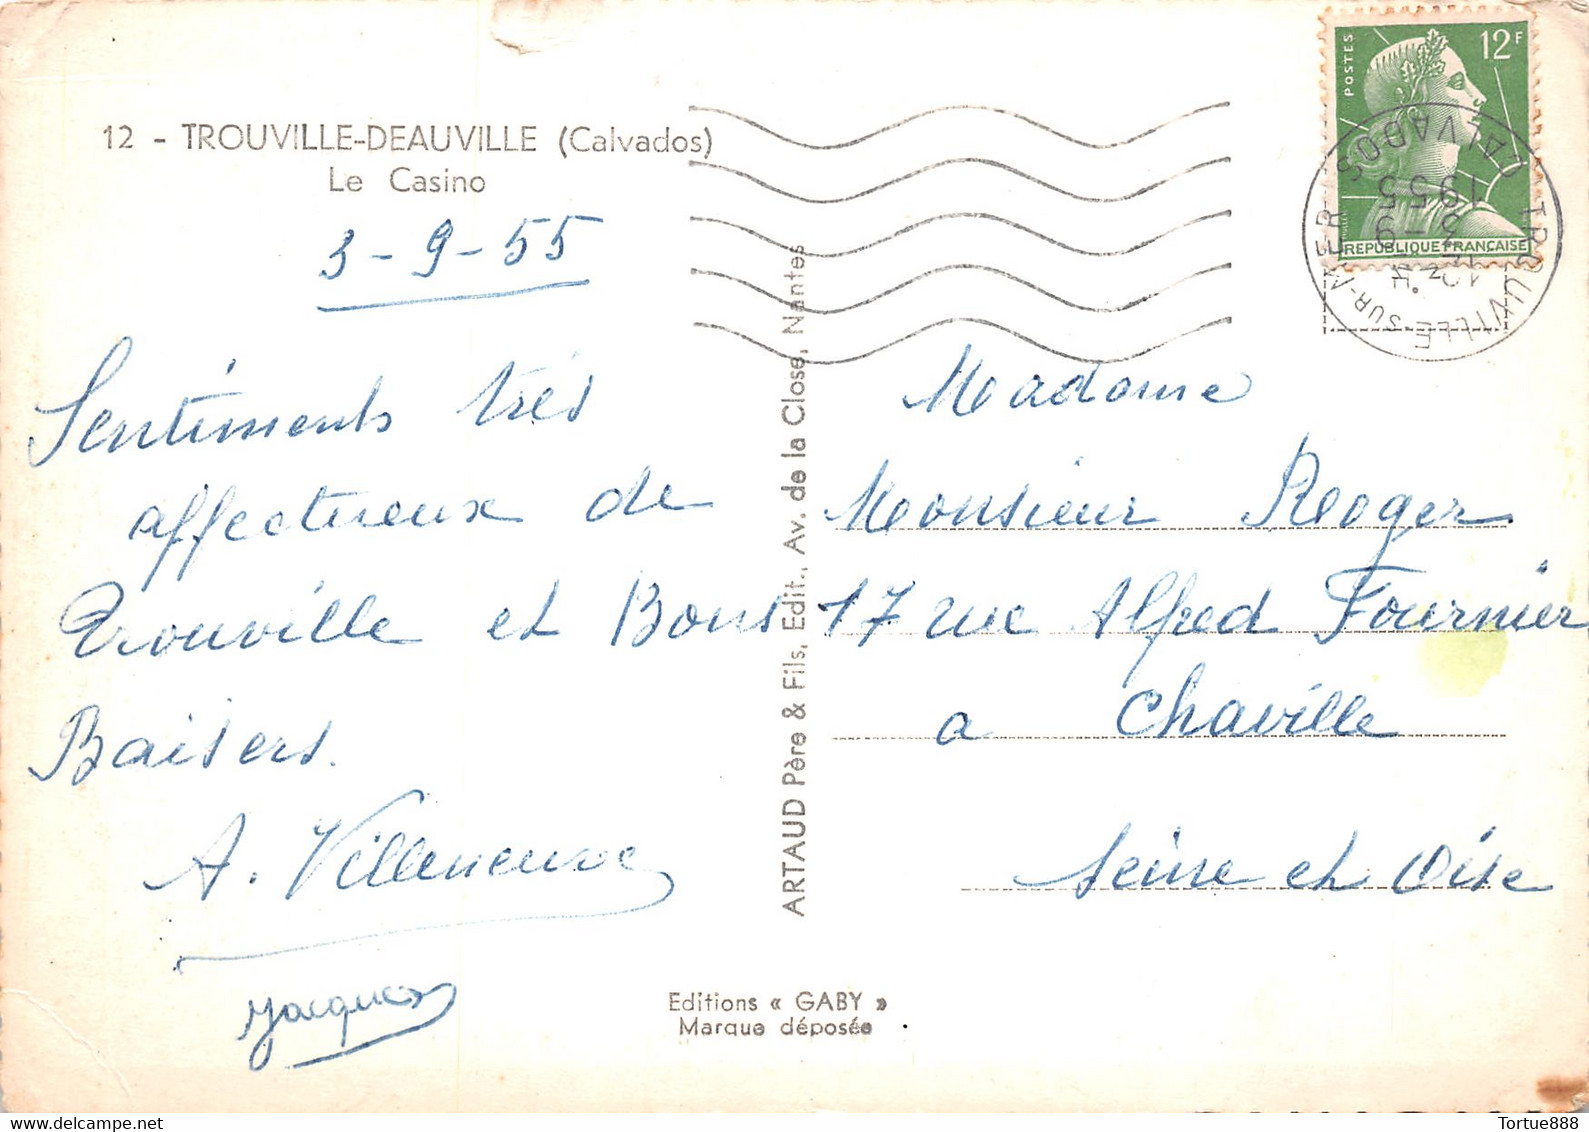 12 - TROUVILLE-DEAUVILLE (Calvados)
Le Casino
3-9-55
Sentiments très
affectueux de
Trouville et Bons
Baisers.
A. Villeneuve
Jacques
ARTAUD Père & Fils, Edit., Av. de la Close, Nantes
Editions « GABY »
Marque déposée
POSTES
12F
REPUBLIQUE FRANÇAISE
TROUVILLE-SUR-MER
CALVADOS
12 H
3-9
1955
Madame
Monsieur Roger
17 rue Alfred Fournier
a Chaville
Seine et Oise
Tortue888